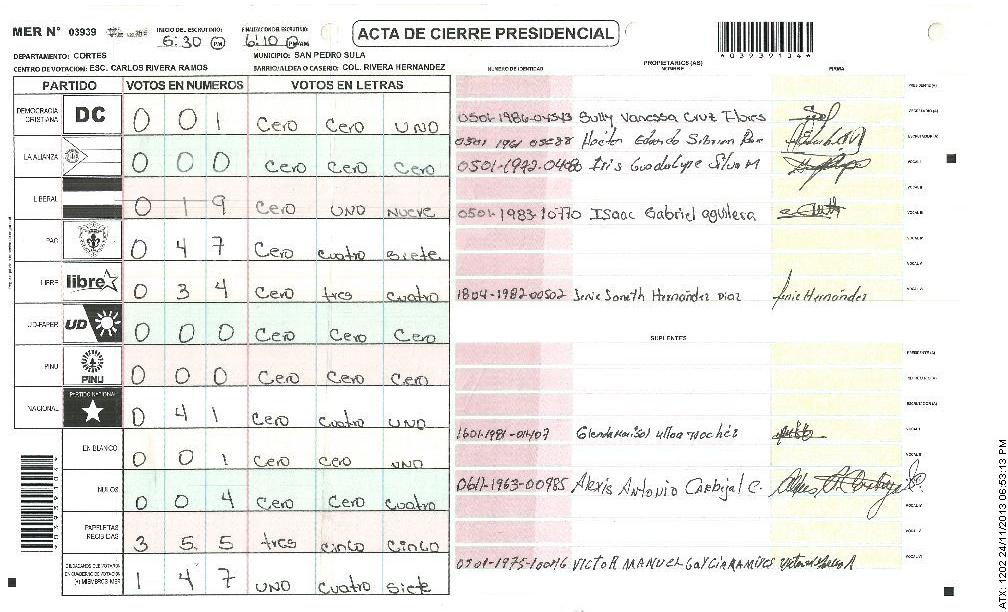 MER N° 03939
INICIO DEL ESCRUTINIO: 5:30 PM
FINALIZACION DEL ESCRUTINIO: 6:10 PM/AM
ACTA DE CIERRE PRESIDENCIAL
*03939134*
DEPARTAMENTO: CORTES
MUNICIPIO: SAN PEDRO SULA
CENTRO DE VOTACION: ESC. CARLOS RIVERA RAMOS
BARRIO/ALDEA O CASERIO: COL. RIVERA HERNANDEZ
PARTIDO VOTOS EN NUMEROS VOTOS EN LETRAS
DEMOCRACIA CRISTIANA DC 0 0 1 Cero Cero UNO
LA ALIANZA 0 0 0 Cero Cero Cero
LIBERAL 0 1 9 Cero UNO Nueve
PAC 0 4 7 Cero cuatro siete
LIBRE libre 0 3 4 Cero tres cuatro
UD-FAPER UD 0 0 0 Cero Cero Cero
PINU PINU 0 0 0 Cero Cero Cero
NACIONAL PARTIDO NACIONAL 0 4 1 Cero cuatro UNO
EN BLANCO 0 0 1 Cero Cero UNO
NULOS 0 0 4 Cero Cero Cuatro
PAPELETAS RECIBIDAS 3 5 5 tres cinco cinco
CIUDADANOS QUE VOTARON EN CUADERNO DE VOTACION (+) MIEMBROS MER 1 4 7 UNO cuatro siete
PROPIETARIOS (AS)
NUMERO DE IDENTIDAD NOMBRE FIRMA
PRESIDENTE (A)
SECRETARIO (A) 0501-1986-04543 Sully Vanessa Cruz Flores
ESCRUTADOR (A) 0501 1961 Hector Edgardo
VOCAL I 0501-1972-0448 Iris Guadalupe Silva M
VOCAL II
VOCAL III 0501-1983-10770 ISaac Gabriel aguilera
VOCAL IV
VOCAL V
VOCAL VI 1804-1982-00502 Janeth Hernández Diaz Hernández
SUPLENTES
PRESIDENTE (A)
SECRETARIO (A)
ESCRUTADOR (A)
VOCAL I 1601-1981-01407 Glenda Marisol ulloa
VOCAL II
VOCAL III 1963-00985 Alexis Antonio Carbajal C.
VOCAL IV
VOCAL V
VOCAL VI 0501-1975-10046 VICTOR MANUEL
ATX: 1202 24/11/2013 06:53:13 PM